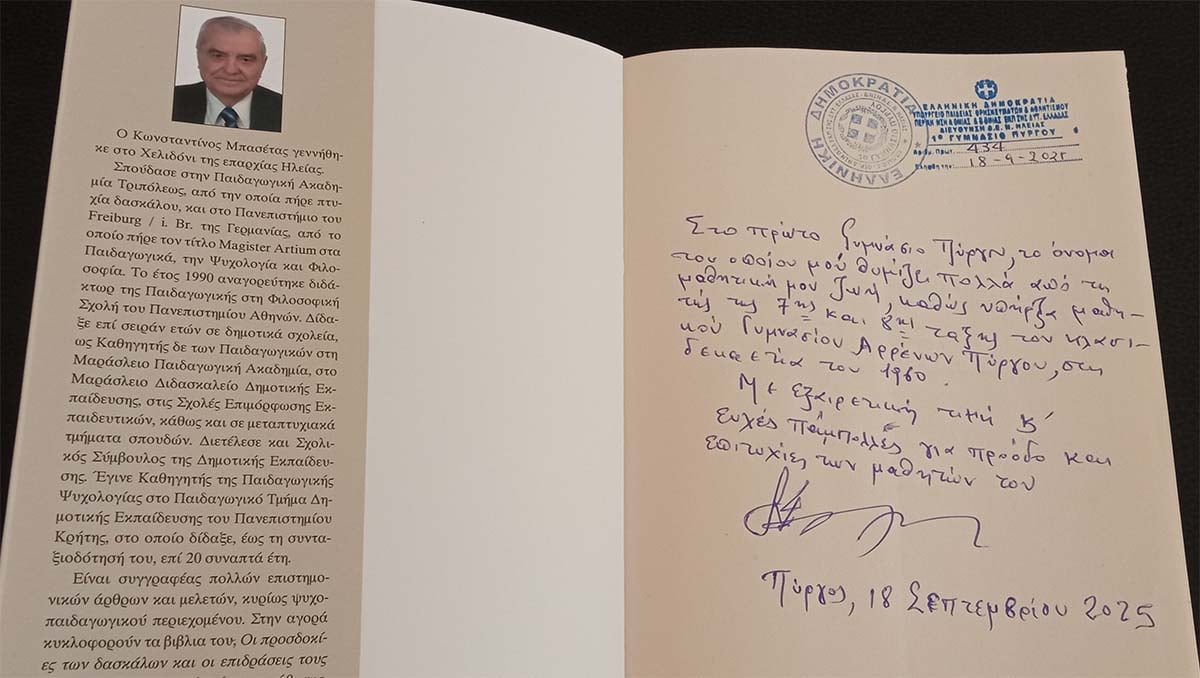 Ο Κωνσταντίνος Μπασέτας γεννήθη-
κε στο Χελιδόνι της επαρχίας Ηλείας.
Σπούδασε στην Παιδαγωγική Ακαδη-
μία Τριπόλεως, από την οποία πήρε πτυ-
χία δασκάλου, και στο Πανεπιστήμιο του
Freiburg / i. Br. της Γερμανίας, από το
οποίο πήρε τον τίτλο Magister Artium στα
Παιδαγωγικά, την Ψυχολογία και Φιλο-
σοφία. Το έτος 1990 αναγορεύτηκε διδά-
κτωρ της Παιδαγωγικής στη Φιλοσοφική
Σχολή του Πανεπιστημίου Αθηνών. Δίδα-
ξε επί σειράν ετών σε δημοτικά σχολεία,
ως Καθηγητής δε των Παιδαγωγικών στη
Μαράσλειο Παιδαγωγική Ακαδημία, στο
Μαράσλειο Διδασκαλείο Δημοτικής Εκ-
παίδευσης, στις Σχολές Επιμόρφωσης Εκ-
παιδευτικών, κάθως και σε μεταπτυχιακά
τμήματα σπουδών. Διετέλεσε και Σχολι-
κός Σύμβουλος της Δημοτικής Εκπαίδευ-
σης. Έγινε Καθηγητής της Παιδαγωγικής
Ψυχολογίας στο Παιδαγωγικό Τμήμα Δη-
μοτικής Εκπαίδευσης του Πανεπιστημίου
Κρήτης, στο οποίο δίδαξε, έως τη συντα-
ξιοδότησή του, επί 20 συναπτά έτη.
Είναι συγγραφέας πολλών επιστημο-
νικών άρθρων και μελετών, κυρίως ψυχο-
παιδαγωγικού περιεχομένου. Στην αγορά
κυκλοφορούν τα βιβλια του; Οι προσδοκί-
ες των δασκάλων και οι επιδράσεις τους
ΕΛΛΗΝΙΚΗ ΔΗΜΟΚΡΑΤΙΑ
ΕΛΛΗΝΙΚΗ ΔΗΜΟΚΡΑΤΙΑ
ΥΠΟΥΡΓΕΙΟ ΠΑΙΔΕΙΑΣ ΘΡΗΣΚΕΥΜΑΤΩΝ & ΑΘΛΗΤΙΣΜΟΥ
ΔΙΕΥΘΥΝΣΗ Δ.Ε. Ν. ΗΛΕΙΑΣ
1ο ΓΥΜΝΑΣΙΟ ΠΥΡΓΟΥ
Αριθμ. Πρωτ. 434
18-9-2025
Στο πρώτο Γυμνάσιο Πύργου, το όνομα
του οποίου μού θυμίζει πολλά από τη
μαθητική μου ζωή, καθώς υπήρξα μαθη-
τής της 7ης και 8ης τάξης του κλασι-
κού Γυμνασίου Αρρένων Πύργου, στη
δεκαετία του 1960.
Με εξαιρετική τιμή κ'
ευχές πάμπολλές για πρόοδο και
επιτυχίες των μαθητών του
Πύργος, 18 Σεπτεμβρίου 2025